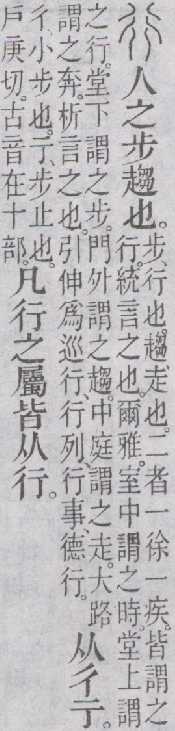 行 人之步趨也。
步、行也。趨、走也。二者一徐一疾。皆謂之
行。統言之也。爾雅。室中謂之時。堂上謂
之行。堂下謂之步。門外謂之趨。中庭謂之走。大路
謂之奔。析言之也。引伸爲巡行、行列、行事、德行。
从彳亍。
彳、小步也。亍、步止也。
戶庚切。古音在十部。
凡行之屬皆从行。